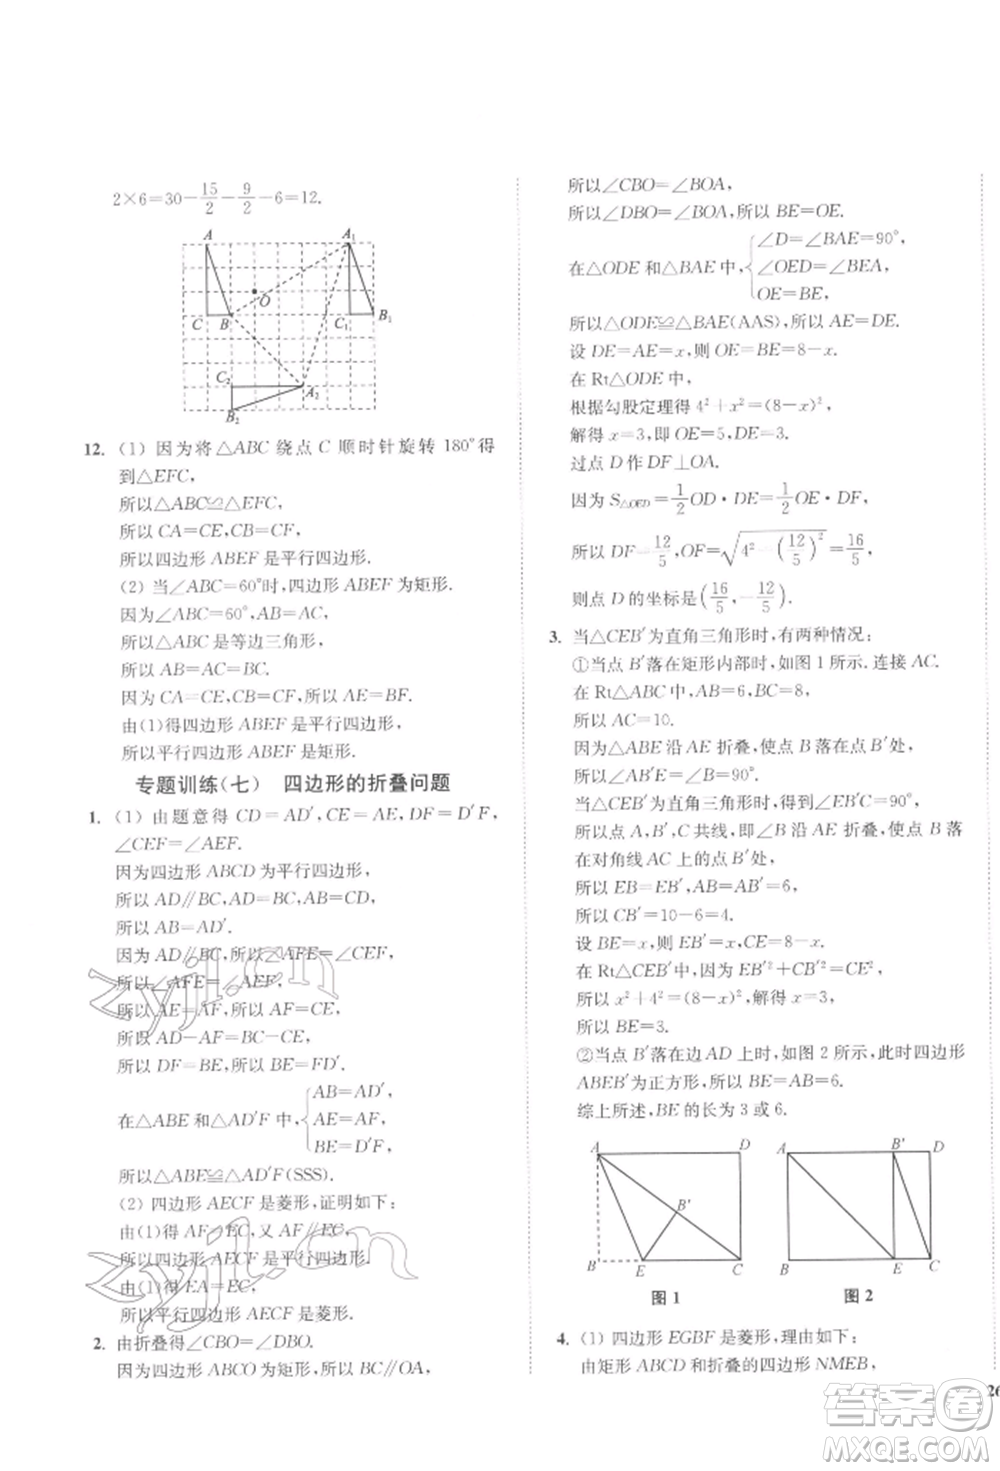 2×6=30-15/2-9/2-6=12.
A
A₁
O
C
B
C₁
B₁
C₂
A₂
B₂
12. (1) 因为将△ABC 绕点 C 顺时针旋转 180°得
到△EFC,
所以△ABC≌△EFC.
所以 CA=CE,CB=CF.
所以四边形 ABEF 是平行四边形.
(2) 当∠ABC=60°时,四边形 ABEF 为矩形.
因为∠ABC=60°,AB=AC,
所以△ABC 是等边三角形,
所以 AB=AC=BC.
因为 CA=CE,CB=CF,所以 AE=BF.
由(1)得四边形 ABEF 是平行四边形,
所以平行四边形 ABEF 是矩形.
专题训练(七) 四边形的折叠问题
1. (1) 由题意得 CD=AD′,CE=AE,DF=D′F,
∠CEF=∠AEF.
因为四边形 ABCD 为平行四边形,
所以 AD∥BC,AD=BC,AB=CD.
所以 AB=AD′.
因为 AD∥BC,所以∠AFE=∠CEF.
所以∠AFE=∠AEF.
所以 AE=AF,所以 AF=CE.
所以 AD-AF=BC-CE.
所以 DF=BE,所以 BE=FD′.
在△ABE 和△AD′F 中,
AB=AD′,
AE=AF,
BE=D′F,
所以△ABE≌△AD′F(SSS).
(2) 四边形 AECF 是菱形,证明如下:
由(1)得 AF=EC,又 AF∥EC,
所以四边形 AECF 是平行四边形.
由(1)得 EA=EC,
所以平行四边形 AECF 是菱形.
2. 由折叠得∠CBO=∠DBO.
因为四边形 ABCO 为矩形,所以 BC∥OA,
所以∠CBO=∠BOA,
所以∠DBO=∠BOA,所以 BE=OE.
在△ODE 和△BAE 中,
∠D=∠BAE=90°,
∠OED=∠BEA,
OE=BE,
所以△ODE≌△BAE(AAS),所以 AE=DE.
设 DE=AE=x,则 OE=BE=8-x.
在 Rt△ODE 中,
根据勾股定理得 4²+x²=(8-x)²,
解得 x=3,即 OE=5,DE=3.
过点 D 作 DF⊥OA.
因为 S△OED=1/2 OD·DE=1/2 OE·DF,
所以 DF=12/5,OF=√(4²-(12/5)²)=16/5,
则点 D 的坐标是(16/5,-12/5).
3. 当△CEB′为直角三角形时,有两种情况:
①当点 B′落在矩形内部时,如图 1 所示.连接 AC.
在 Rt△ABC 中,AB=6,BC=8,
所以 AC=10.
因为△ABE 沿 AE 折叠,使点 B 落在点 B′处,
所以∠AB′E=∠B=90°.
当△CEB′为直角三角形时,得到∠EB′C=90°,
所以点 A,B′,C 共线,即∠B 沿 AE 折叠,使点 B 落
在对角线 AC 上的点 B′处,
所以 EB=EB′,AB=AB′=6,
所以 CB′=10-6=4.
设 BE=EB′=x,CE=8-x.
在 Rt△CEB′中,EB′²+CB′²=CE²,
所以 x²+4²=(8-x)²,解得 x=3,
所以 BE=3.
②当点 B′落在边 AD 上时,如图 2 所示,此时四边形
ABEB′为正方形,所以 BE=AB=6.
综上所述,BE 的长为 3 或 6.
A
D
B′
B′
E
C
图 1
A
B′
D
B
E
C
图 2
4. (1) 四边形 EGBF 是菱形,理由如下:
由矩形 ABCD 和折叠的四边形 NMEB,
26
zyjl.cn
zyjl.cn
答案卷
MXQE.COM